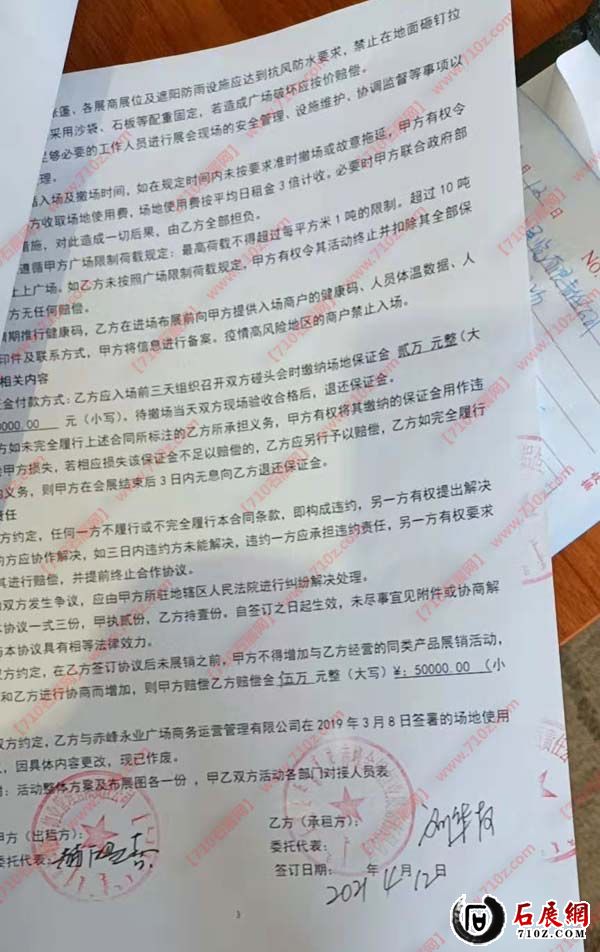 长蓬、各展商展位及遮阳防雨设施应达到抗风防水要求，禁止在地面砸钉拉
采用沙袋、石板等配重固定，若造成广场破坏应按价赔偿。
足够必要的工作人员进行展会现场的安全管理、设施维护、协调监督等事项以
理。
入场及撤场时间，如在规定时间内未按要求准时撤场或故意拖延，甲方有权令
方收取场地使用费，场地使用费按平均日租金3倍计收。必要时甲方联合政府部
措施，对此造成一切后果，由乙方全部担负。
遵循甲方广场限制荷载规定：最高荷载不得超过每平方米1吨的限制。超过10吨
上广场。如乙方未按照广场限制荷载规定，甲方有权令其活动终止并扣除其全部保
方无任何赔偿。
期推行健康码，乙方在进场布展前向甲方提供入场商户的健康码、人员体温数据、人
印件及联系方式，甲方将信息进行备案。疫情高风险地区的商户禁止入场。
相关内容
金付款方式：乙方应入场前三天组织召开双方碰头会时缴纳场地保证金 贰万 元整（大
0000.00 元（小写）。待撤场当天双方现场验收合格后，退还保证金。
方如未完全履行上述合同所标注的乙方所承担义务，甲方有权将其缴纳的保证金用作违
甲方损失，若相应损失该保证金不足以赔偿的，乙方应另行予以赔偿，乙方如完全履行
义务，则甲方在会展结束后3日内无息向乙方退还保证金。
责任
方约定，任何一方不履行或不完全履行本合同条款，即构成违约，另一方有权提出解决
方应协作解决，如三日内违约方未能解决，违约一方应承担违约责任，另一方有权要求
其进行赔偿，并提前终止合作协议。
双方发生争议，应由甲方所驻地辖区人民法院进行纠纷解决处理。
协议一式三份，甲执贰份，乙方持壹份，自签订之日起生效，未尽事宜见附件或协商解
与本协议具有相等法律效力。
双方约定，在乙方签订协议后未展销之前，甲方不得增加与乙方经营的同类产品展销活动，
和乙方进行协商而增加，则甲方赔偿乙方赔偿金 伍万 元整（大写）¥：50000.00 （小
双方约定，乙方与赤峰永业广场商务运营管理有限公司在2019年3月8日签署的场地使用
，因具体内容更改，现已作废。
：活动整体方案及布展图各一份，甲乙双方活动各部门对接人员表
甲方（出租方）：
委托代表：
乙方（承租方）：
委托代表：
签订日期： 年 月 日
2021 4 12
3
【710石展网】www.710z.com
石展網
710Z.COM